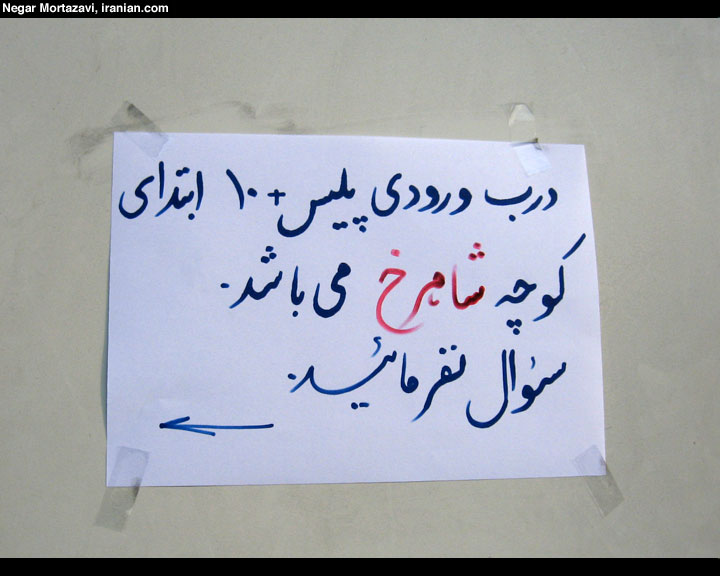 Negar Mortazavi, iranian.com
درب ورودی پلیس +۱۰ ابتدای
کوچه شاهرخ می باشد.
سئوال نفرمائید.